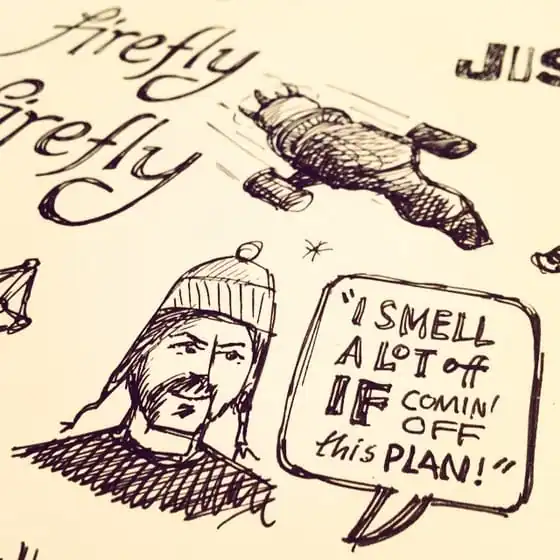 firefly
firefly
JUS
"I SMELL
A LOT off
IF COMIN'
OFF
this PLAN!"